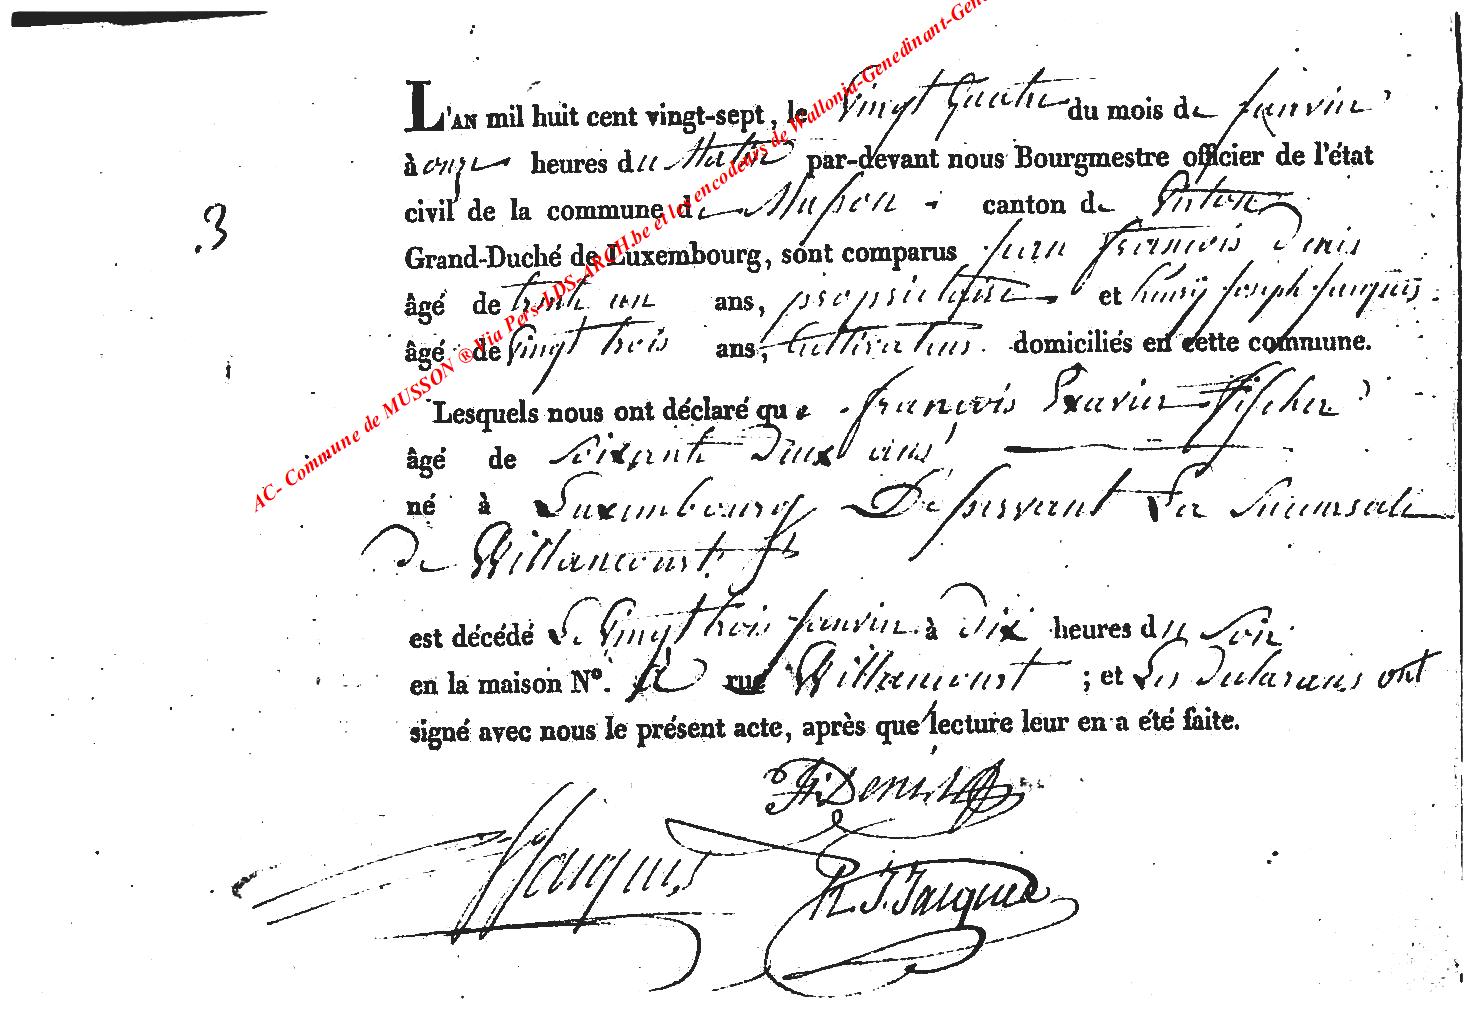 L'AN mil huit cent vingt-sept, le Vingt Quatre du mois de Janvier
à onze heures du Matin par-devant nous Bourgmestre officier de l'état
civil de la commune de Musson canton de Virton
.3
Grand-Duché de Luxembourg, sont comparus Jean françois Denis
âgé de trente un ans, propriétaire et henry Joseph Jacques
âgé de Vingt trois ans, Cultivateur domiciliés en cette commune.
Lesquels nous ont déclaré que françois Xavier Fischer
âgé de Soixante Deux ans
né à Luxembourg Desservant La Succursale
de Willancourt
est décédé Le Vingt trois Janvier à Dix heures du Soir
en la maison N°. rue Willancourt ; et Les Declarans ont
signé avec nous le présent acte, après que lecture leur en a été faite.
Denis
Jacques H. J. Jacques
AC- Commune de MUSSON ® Via Pers-LDS-ARCH.be et les encodeurs de Wallonia-Genedinant-Gen